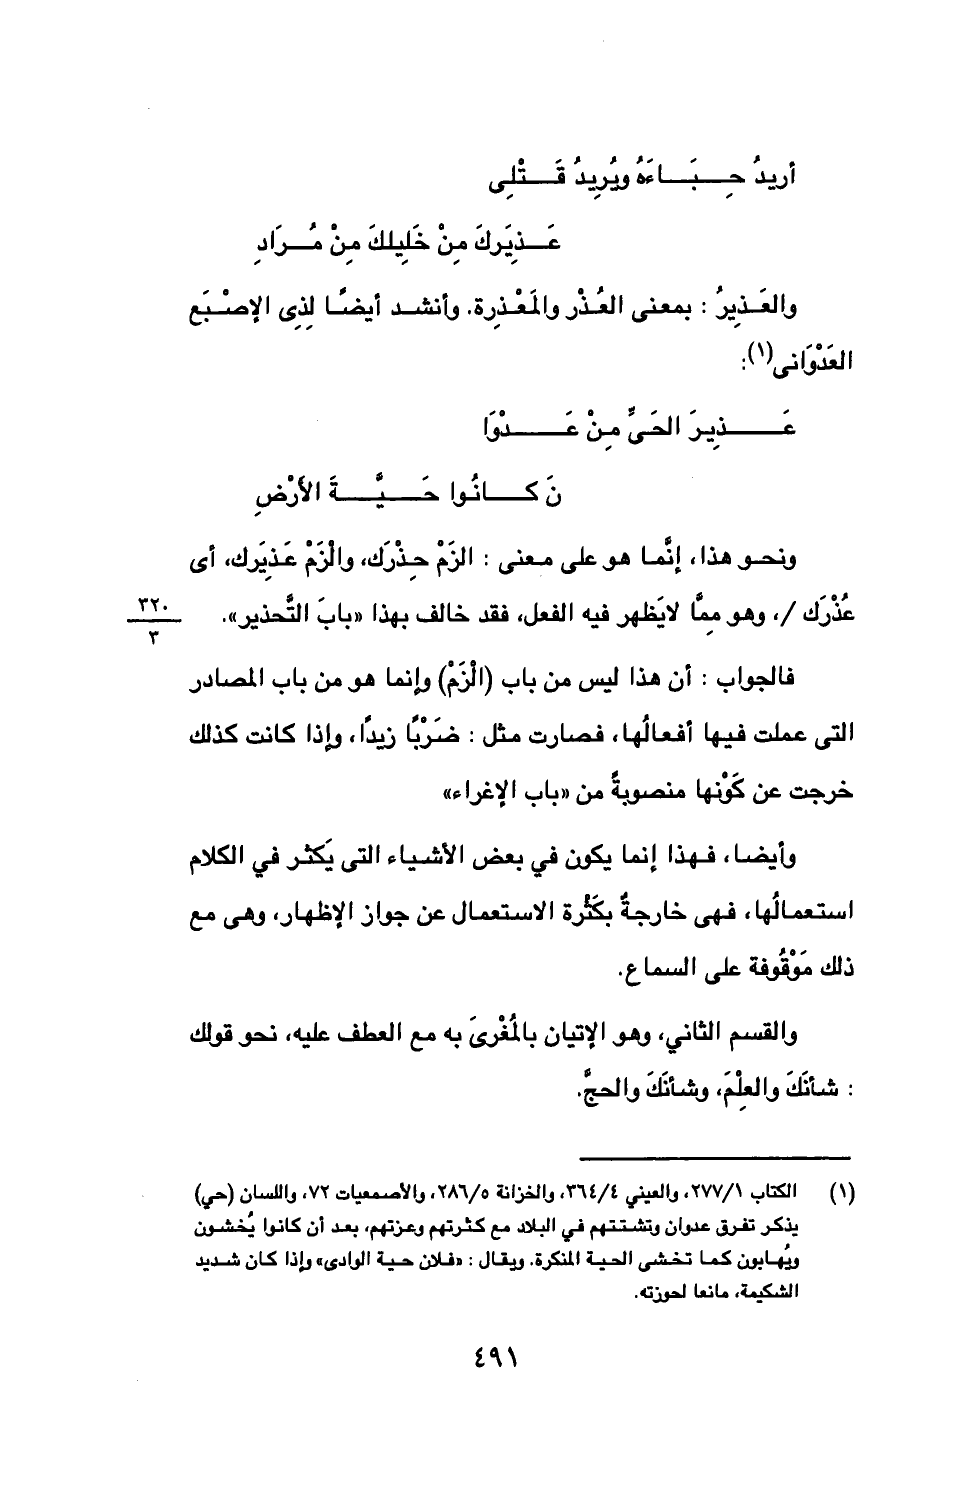 أريدُ حِبَاءَهُ ويُرِيدُ قَتْلِى
عَذِيَركَ مِنْ خَلِيلكَ مِنْ مُرَادِ
والعَذِيرُ : بمعنى العُذْر والمَعْذِرة. وأنشد أيضًا لذِى الإصْبَع
العَدْوَانى(١):
عَذِيرَ الحَىِّ مِنْ عَدْوَا
نَ كانُوا حَيَّةَ الأرْضِ
ونحو هذا، إنَّما هو على معنى : الزَمْ حِذْرَك، والْزَمْ عَذِيَرك، أى
عُذْرَك /، وهو مِمَّا لايَظهر فيه الفعل، فقد خالف بهذا «بابَ التَّحذير».
٣٢٠
٣
فالجواب : أن هذا ليس من باب (الْزَمْ) وإنما هو من باب المصادر
التى عملت فيها أفعالُها، فصارت مثل : ضَرْبًا زيدًا، وإذا كانت كذلك
خرجت عن كَوْنها منصوبةً من «باب الإغراء»
وأيضا، فهذا إنما يكون في بعض الأشياء التى يَكثر في الكلام
استعمالُها، فهى خارجةٌ بكَثْرة الاستعمال عن جواز الإظهار، وهى مع
ذلك مَوْقُوفة على السماع.
والقسم الثاني، وهو الإتيان بالمُغْرىَ به مع العطف عليه، نحو قولك
: شأنَكَ والعِلْمَ، وشأنَكَ والحجَّ.
(١) الكتاب ٢٧٧/١، والعيني ٣٦٤/٤، والخزانة ٢٨٦/٥، والأصمعيات ٧٢، واللسان (حي)
يذكر تفرق عدوان وتشتتهم في البلاد مع كثرتهم وعزتهم، بعد أن كانوا يُخشون
ويُهابون كما تخشى الحية المنكرة. ويقال : «فلان حية الوادى» وإذا كان شديد
الشكيمة، مانعا لحوزته.
٤٩١